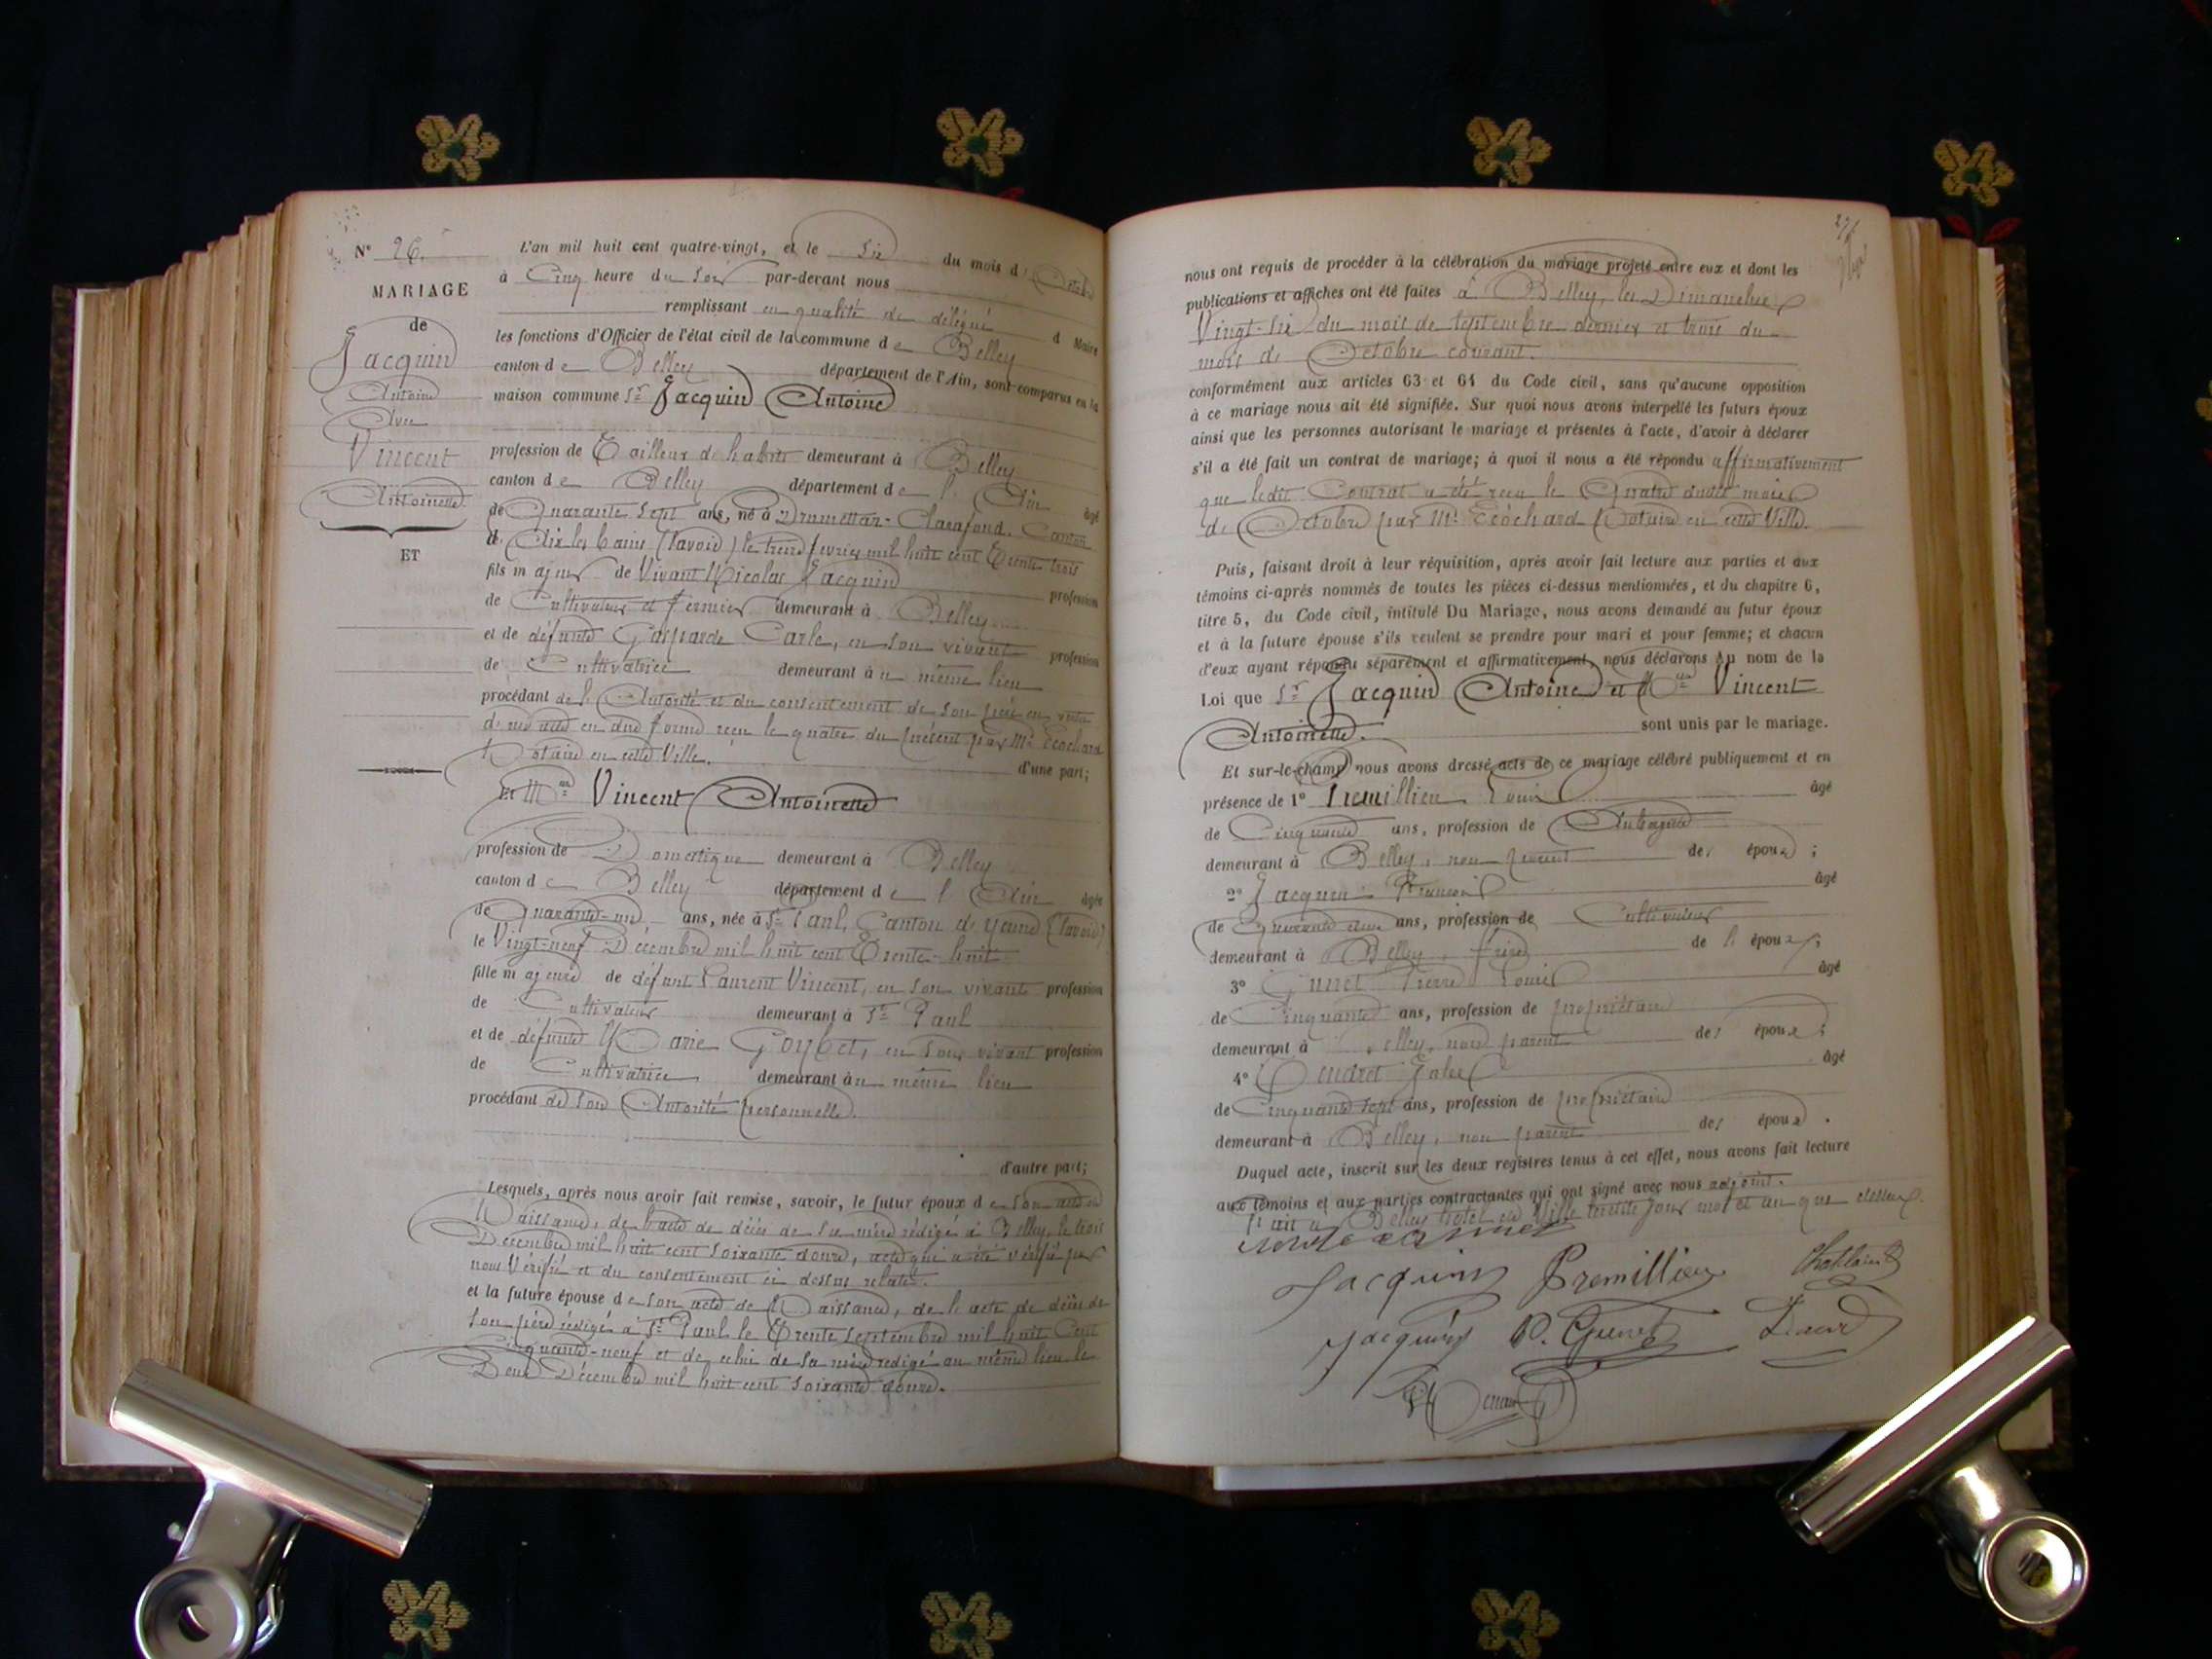 N° 26.
MARIAGE
de
Jacquin
Antoine
Avec
Vincent
Antoinette
ET
L'an mil huit cent quatre-vingt, et le Six du mois d' Octobre
à Cinq heure du Soir par-devant nous
remplissant en qualité de délégué d Maire
les fonctions d'Officier de l'état civil de la commune de Belley
canton de Belley département de l'Ain, sont comparus en la
maison commune Sr Jacquin Antoine
profession de Tailleur d'habits demeurant à Belley
canton de Belley département de l'Ain âgé
de Quarante Sept ans, né à Drumettaz-Clarafond, Canton
d'Aix les bains (Savoie) le treize février mil huit cent Trente trois
fils majeur de Vivant Nicolas Jacquin profession
de Cultivateur et fermier demeurant à Belley
et de défunte Gasparde Carle, en son vivant profession
de Cultivatrice demeurant au même lieu
procédant de l'Autorité et du consentement de son père en vertu
d'un acte en due forme reçu le quatre du présent par Me Ecochard
Notaire en cette Ville. d'une part;
Et Mlle Vincent Antoinette
profession de Domestique demeurant à Belley
canton de Belley département de l'Ain âgée
de Quarante-un ans, née à St Paul, Canton d'Yenne (Savoie)
le Vingt-neuf Décembre mil huit cent Trente-huit
fille majeure de défunt Laurent Vincent, en son vivant profession
de Cultivateur demeurant à St Paul
et de défunte Marie Goybet, en son vivant profession
de Cultivatrice demeurant au même lieu
procédant de son Autorité personnelle.
d'autre part;
Lesquels, après nous avoir fait remise, savoir, le futur époux de son acte de
Naissance, de l'acte de décès de sa mère rédigé à Belley, le trois
Décembre mil huit cent soixante douze, acte qui a été vérifié par
nous Vérifié et du consentement ci dessus relaté.
et la future épouse de son acte de Naissance, de l'acte de décès de
son père rédigé à St Paul le Trente Septembre mil huit Cent
Cinquante-neuf et de celui de sa mère rédigé au même lieu le
Deux Décembre mil huit cent soixante douze.
nous ont requis de procéder à la célébration du mariage projeté entre eux et dont les
publications et affiches ont été faites à Belley, les Dimanches
Vingt-Six du mois de Septembre dernier et trois du
mois de Octobre courant.
conformément aux articles 63 et 64 du Code civil, sans qu'aucune opposition
à ce mariage nous ait été signifiée. Sur quoi nous avons interpellé les futurs époux
ainsi que les personnes autorisant le mariage et présentes à l'acte, d'avoir à déclarer
s'il a été fait un contrat de mariage; à quoi il nous a été répondu affirmativement
que ledit Contrat a été reçu le Quatre dudit mois
d'Octobre par Me Ecochard Notaire en cette Ville.
Puis, faisant droit à leur réquisition, après avoir fait lecture aux parties et aux
témoins ci-après nommés de toutes les pièces ci-dessus mentionnées, et du chapitre 6,
titre 5, du Code civil, intitulé Du Mariage, nous avons demandé au futur époux
et à la future épouse s'ils veulent se prendre pour mari et pour femme; et chacun
d'eux ayant répondu séparément et affirmativement, nous déclarons Au nom de la
Loi que Sr Jacquin Antoine et Mlle Vincent
Antoinette. sont unis par le mariage.
Et sur-le-champ nous avons dressé acte de ce mariage célébré publiquement et en
présence de 1° Premillieu Louis âgé
de Cinquante ans, profession de Aubergiste
demeurant à Belley, non parent des époux;
2° Jacquin François âgé
de Quarante deux ans, profession de Cultivateur
demeurant à Belley, frère de l'époux;
3° Gunet Pierre Louis âgé
de Cinquante ans, profession de propriétaire
demeurant à Belley, non parent des époux;
4° Jules âgé
de Cinquante sept ans, profession de propriétaire
demeurant à Belley, non parent des époux.
Duquel acte, inscrit sur les deux registres tenus à cet effet, nous avons fait lecture
aux témoins et aux parties contractantes qui ont signé avec nous adjoint.
Fait à Belley hôtel de Ville lesdits jour mois et an que dessus.
Jacquin Premillieu
Jacquin P. Gunet